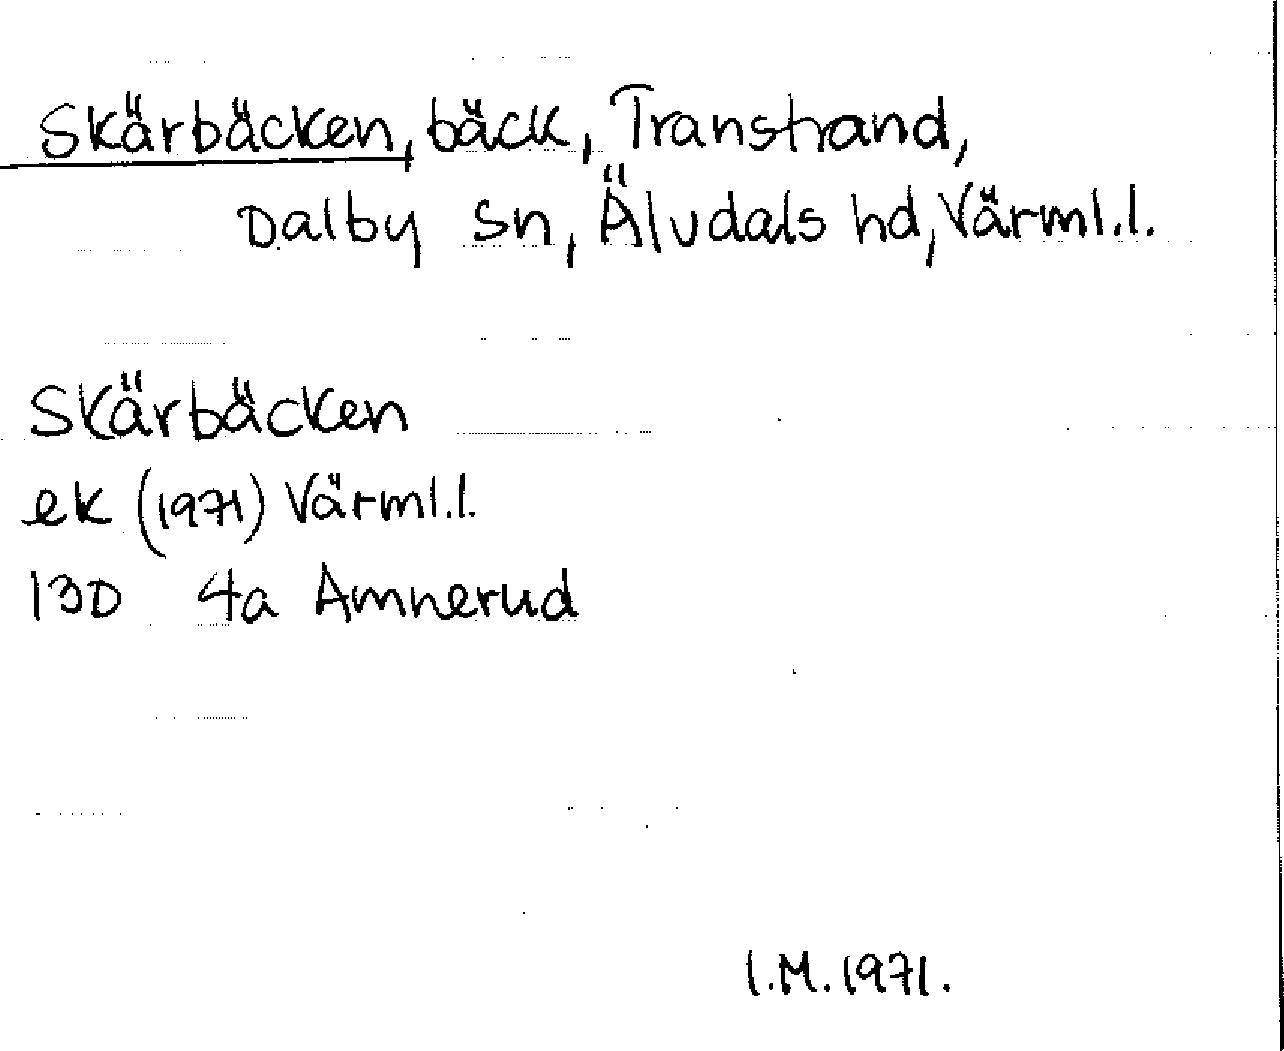 Skärbäcken, bäck, Transtrand,
Dalby sn, Älvdals hd, Värml.l.
Skärbäcken
ek (1971) Värml.l.
13D 4a Amnerud
I.M. 1971.